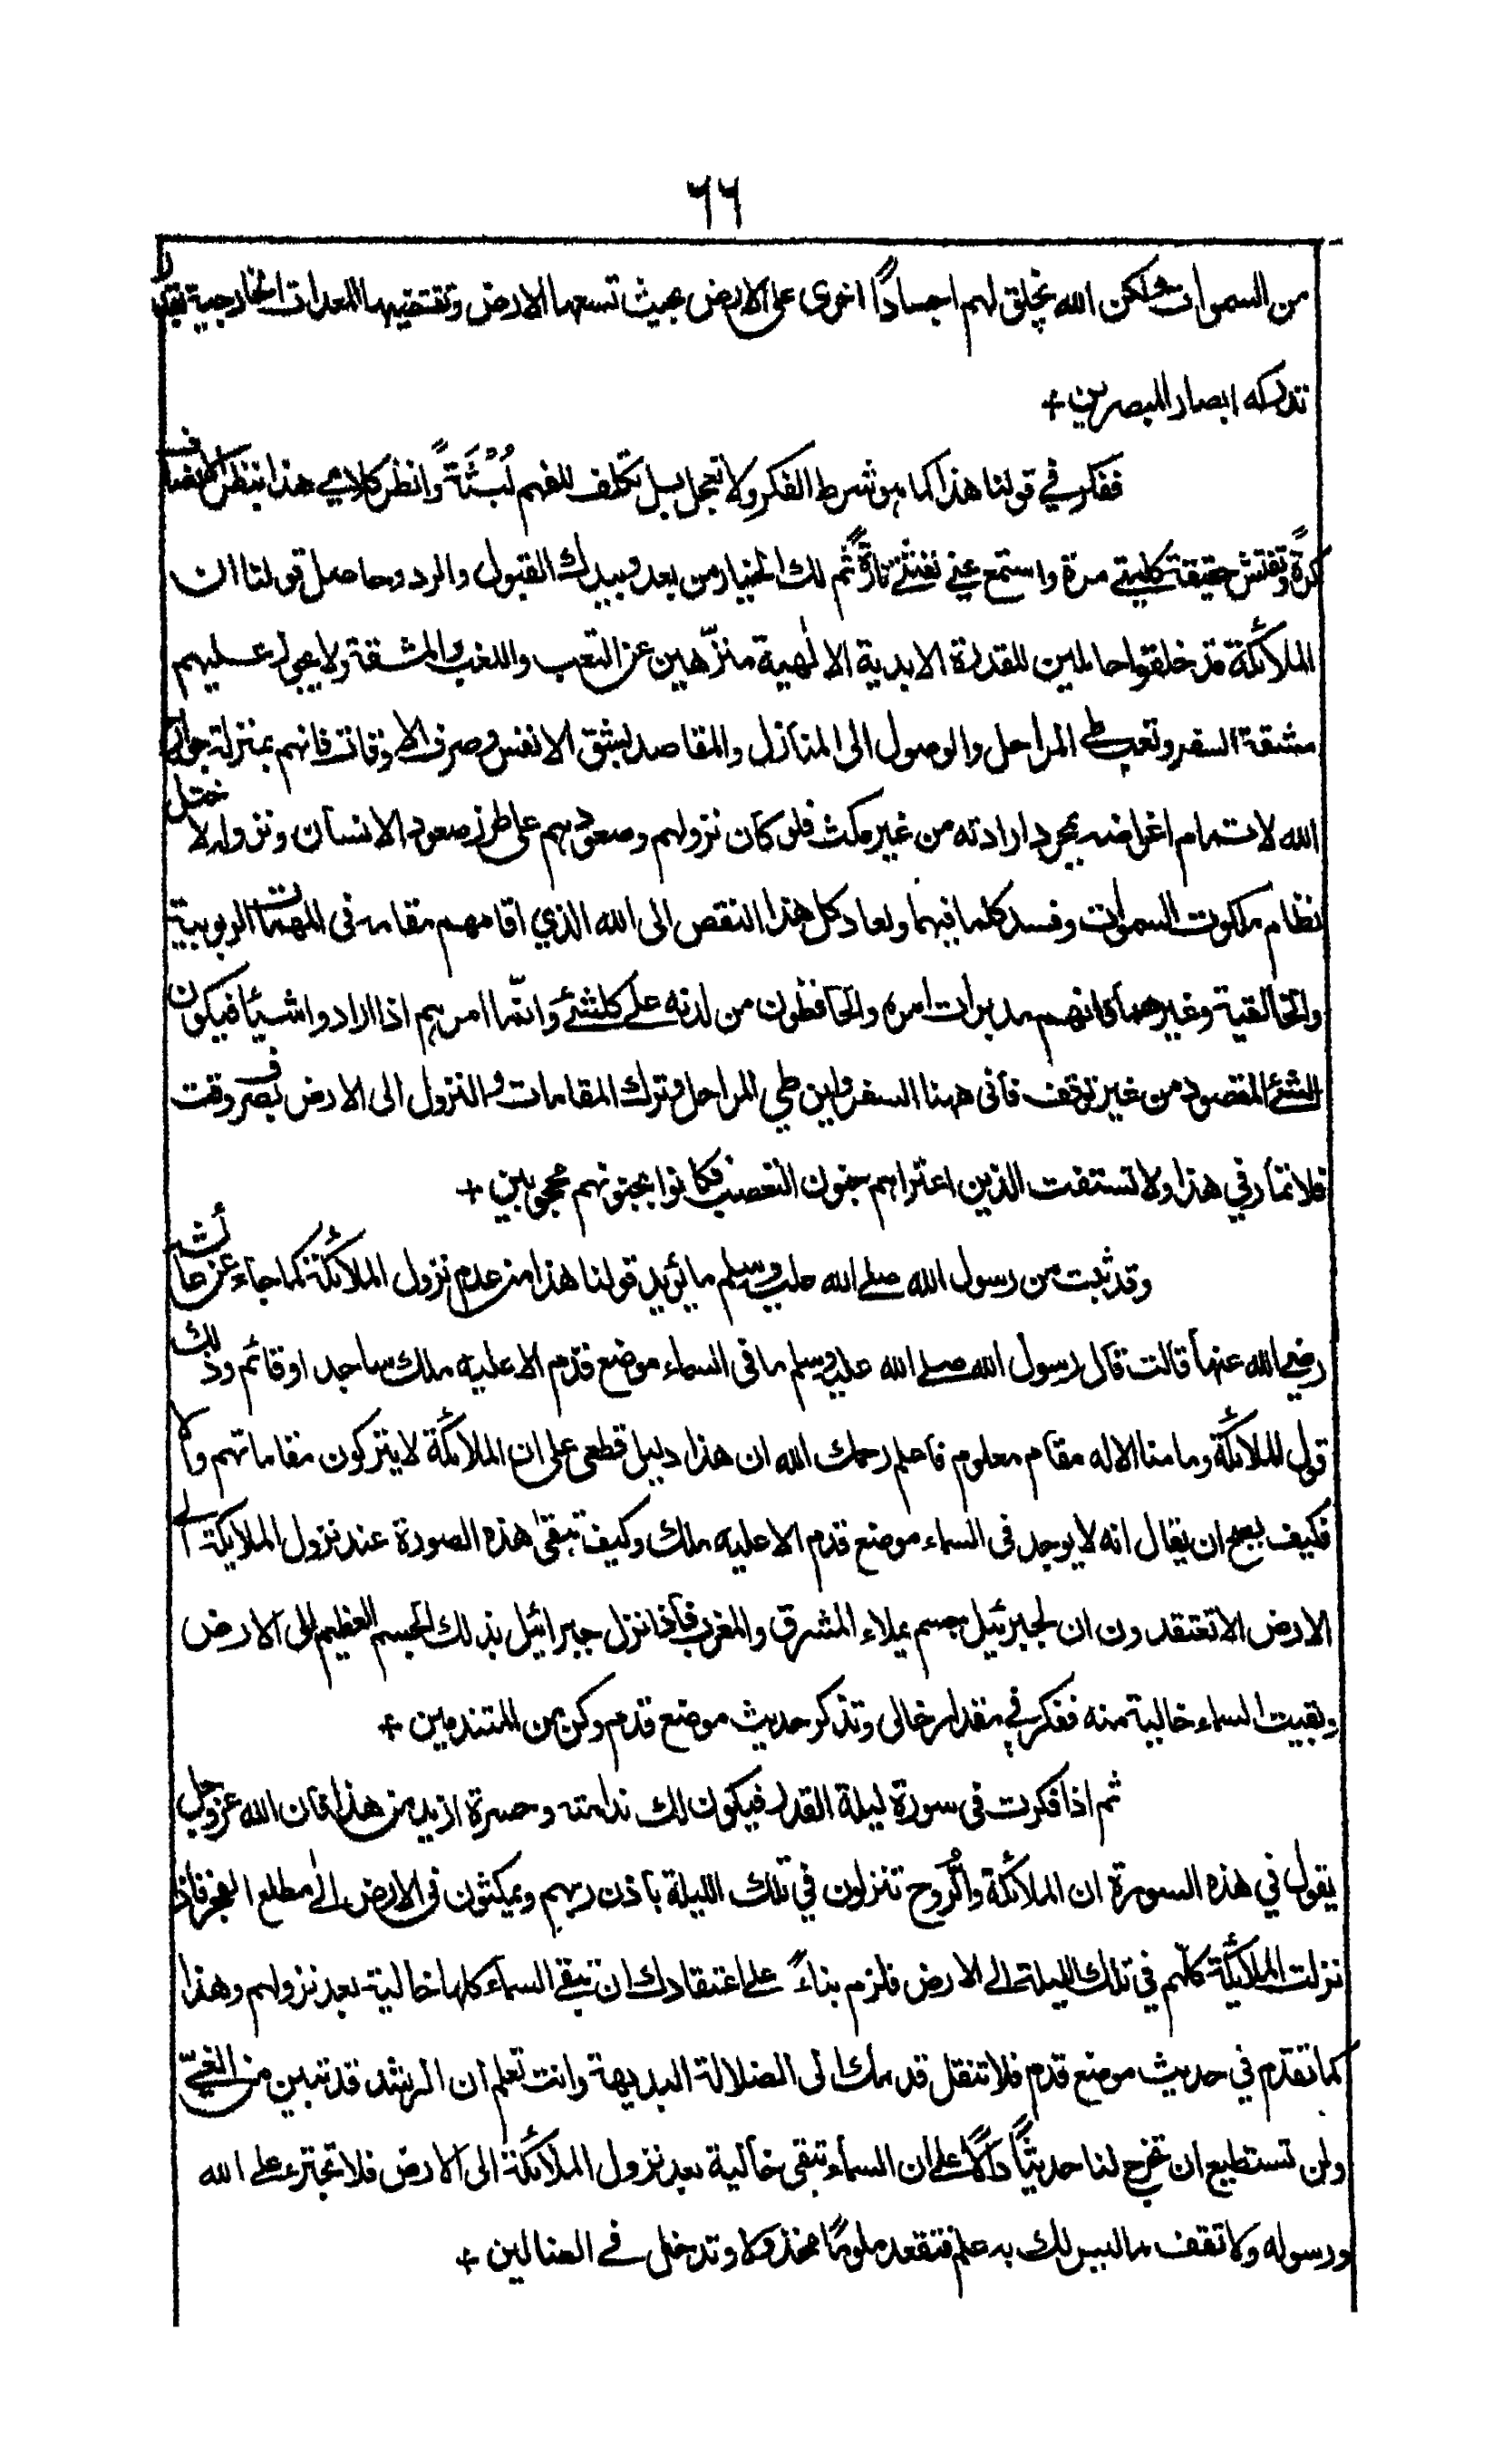 ٦٦
من السموات ولكن الله يخلق لهم اجسادًا اخرى على الارض بحيث تسعها الارض وتقتضيها المعدات الخارجية بقدر
تدركه ابصار المبصرين +
ففكر في قولنا هذا كما هو شرط الفكر ولا تعجل بل تكلف للفهم لُبْثَةً وانظر كلامي هذا بنظر الانصاف
كرةً وتفتش حقيقة كلمتي مرة واستمع عني نفثتي تارةً ثم لك الخيار من بعد وبيدك القبول والرد وحاصل قولنا ان
الملائكة قد خلقوا حاملين للقدرة الابدية الالٰهية منزّهين عن التعب واللغب والمشقة ولا يجوز عليهم
مشقة السفر وتعب طي المراحل والوصول الى المنازل والمقاصد بشق الانفس وصرف الاوقات فانهم بمنزلة جوارح
الله لاتمام اغراضه بمجرد ارادته من غير مكث فلو كان نزولهم وصعودهم على طرز صعود الانسان ونزوله لاختل
نظام ملكوت السموات وفسد كلما فيهما ولعاد كل هذا النقص الى الله الذي اقامهم مقامه فى المهمات الربوبية
والخالقية وغيرهما فانهم مدبرات امره والحافظون من لدنه على كلشئ وانّما امرهم اذا ارادوا شيئا فيكون
الشئ المقصود من غير توقف فأنى ههنا السفر واين طي المراحل وترك المقامات والنزول الى الارض بصرف وقت
فلا تمار في هذا ولا تستفت الذين اعتراهم جنون التعصب فكانوا بجنونهم محجوبين +
وقد ثبت من رسول الله صلى الله عليه وسلم ما يؤيد قولنا هذا من عدم نزول الملائكة كما جاء عن عائشة
رضي الله عنها قالت قال رسول الله صلى الله عليه وسلم ما فى السماء موضع قدم الا عليه ملك ساجد او قائم وذلك
قول الملائكة وما منا الا له مقام معلوم فاعلم رحمك الله ان هذا دليل قطعى على ان الملائكة لا يتركون مقاماتهم والا
فكيف يصح ان يقال انه لا يوجد فى السماء موضع قدم الا عليه ملك وكيف تبقى هذه الصورة عند نزول الملايكة الى
الارض الا تعتقدون ان لجبرئيل جسم يملاء المشرق والمغرب فاذا نزل جبرائيل بذلك الجسم العظيم الى الارض
وبقيت السماء خالية منه ففكر في مقدار خالى وتذكر حديث موضع قدم وكن من المتندمين +
ثم اذا فكرت فى سورة ليلة القدر فيكون لك ندامة وحسرة ازيد من هذا فان الله عز وجل
يقول في هذه السورة ان الملائكة والرُّوح تنزلون في تلك الليلة باذن ربهم ويمكثون فى الارض الى مطلع الفجر فاذا
نزلت الملائكة كلّهم في تلك الليلة الى الارض فلزم بناءً على اعتقادك ان تبقى السماء كلها خالية بعد نزولهم وهذا
كما تقدّم في حديث موضع قدم فلا تنقل قدمك الى الضلالة البديهة وانت تعلم ان الرشد قد تبين من الغيّ
ولن تستطيع ان تخرج لنا حديثًا دالًا على ان السماء تبقى خالية بعد نزول الملائكة الى الارض فلا تجترء على الله
ورسوله ولا تقف ما ليس لك به علم فتقعد ملومًا مخذولا وتدخل في الضالين +